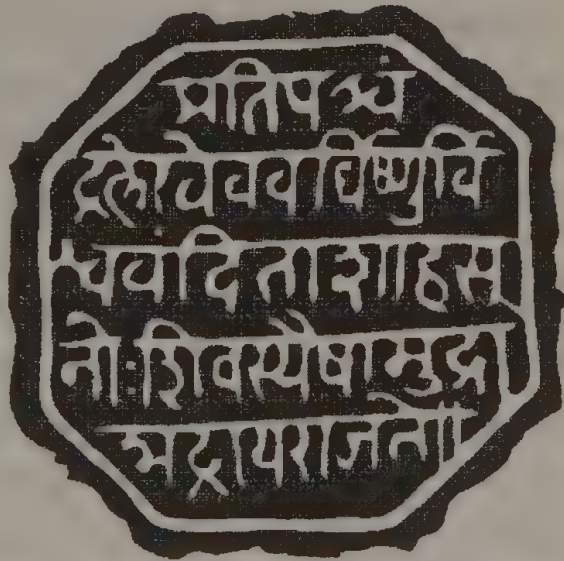 प्रतिपच्चं
द्रलेखेववर्धिष्णुर्वि
श्ववंदिताशाहसू
नोःशिवस्यैषामुद्रा
भद्रायराजते